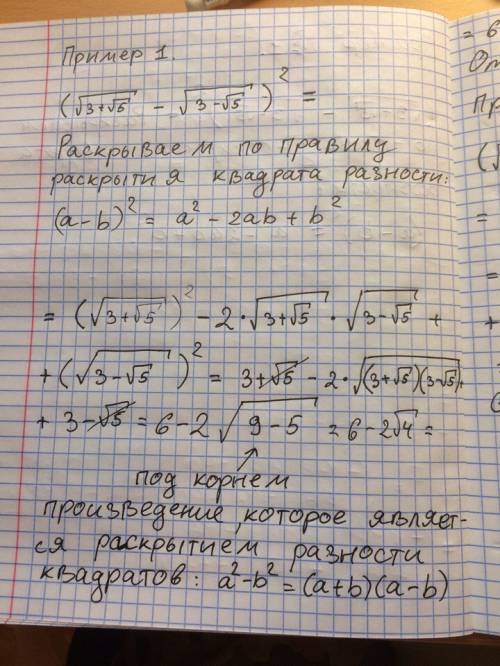 Пример 1.
(√3+√5 − √3−√5)² =
Раскрываем по правилу
раскрытия квадрата разности:
(a−b)² = a² − 2ab + b²
= (√3+√5)² − 2·√3+√5 · √3−√5 +
+ (√3−√5)² = 3+√5 − 2·√(3+√5)(3−√5) +
+ 3−√5 = 6−2√9−5 = 6−2√4 =
под корнем
произведение, которое являет-
ся раскрытием разности
квадратов: a²−b² = (a+b)(a−b)
= 6
От
Пр
(√
=
=
+